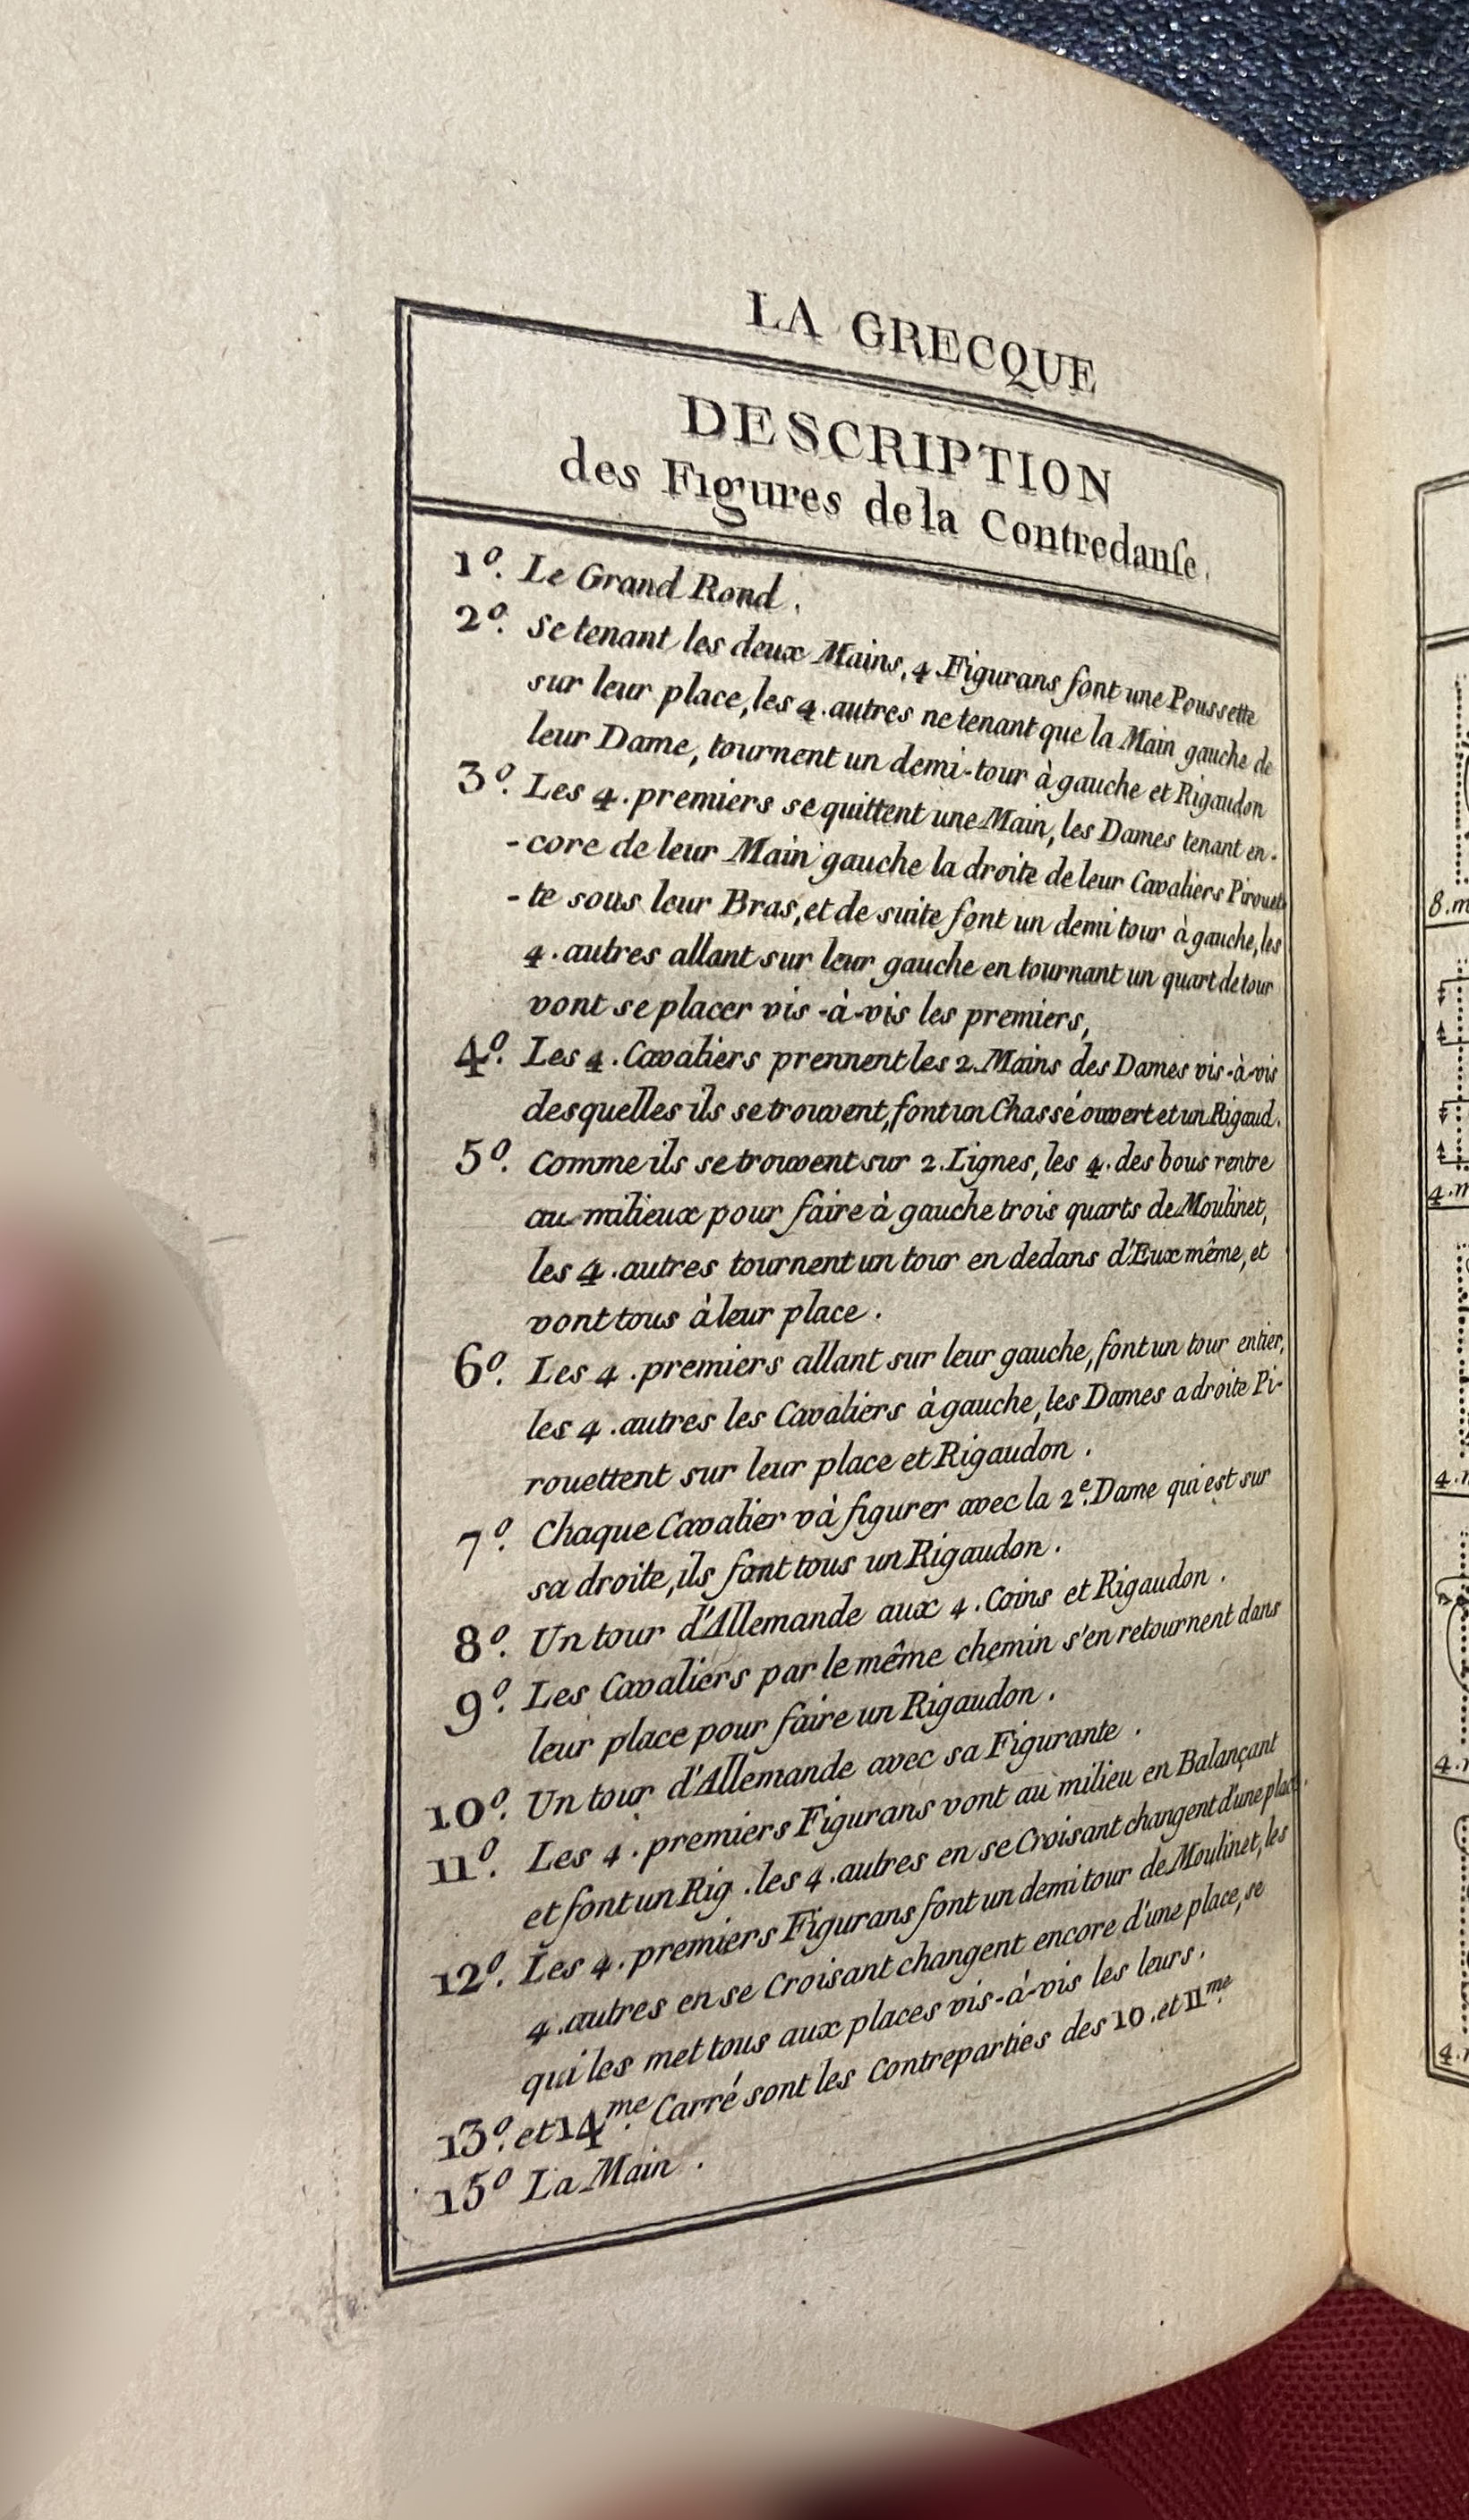 LA GRECQUE
DESCRIPTION
des Figures de la Contredanſe.
1º. Le Grand Rond.
2º. Se tenant les deux Mains, 4 Figurans font une Poussette
sur leur place, les 4. autres ne tenant que la Main gauche de
leur Dame, tournent un demi-tour à gauche et Rigaudon
3º. Les 4. premiers se quittent une Main, les Dames tenant en-
-core de leur Main gauche la droite de leur Cavaliers Pirouet
-te sous leur Bras, et de suite font un demi tour à gauche, les
4. autres allant sur leur gauche en tournant un quart de tour
vont se placer vis-à-vis les premiers,
4º. Les 4. Cavaliers prennent les 2. Mains des Dames vis-à-vis
desquelles ils se trouvent, font un Chassé ouvert et un Rigaud.
5º. Comme ils se trouvent sur 2. Lignes, les 4. des bous rentre
au milieux pour faire à gauche trois quarts de Moulinet,
les 4. autres tournent un tour en dedans d'Eux même, et
vont tous à leur place.
6º. Les 4. premiers allant sur leur gauche, font un tour entier,
les 4. autres les Cavaliers à gauche, les Dames a droite Pi-
rouettent sur leur place et Rigaudon.
7º. Chaque Cavalier và figurer avec la 2e. Dame qui est sur
sa droite, ils font tous un Rigaudon.
8º. Un tour d'Allemande aux 4. Coins et Rigaudon.
9º. Les Cavaliers par le même chemin s'en retournent dans
leur place pour faire un Rigaudon.
10º. Un tour d'Allemande avec sa Figurante.
11º. Les 4. premiers Figurans vont au milieu en Balançant
et font un Rig. les 4. autres en se Croisant changent d'une place.
12º. Les 4. premiers Figurans font un demi tour de Moulinet, les
4. autres en se Croisant changent encore d'une place, se
qui les met tous aux places vis-à-vis les leurs.
13º. et 14me. Carré sont les Contreparties des 10. et 11me.
15º La Main.
8.m
4.m
4.
4.
4.